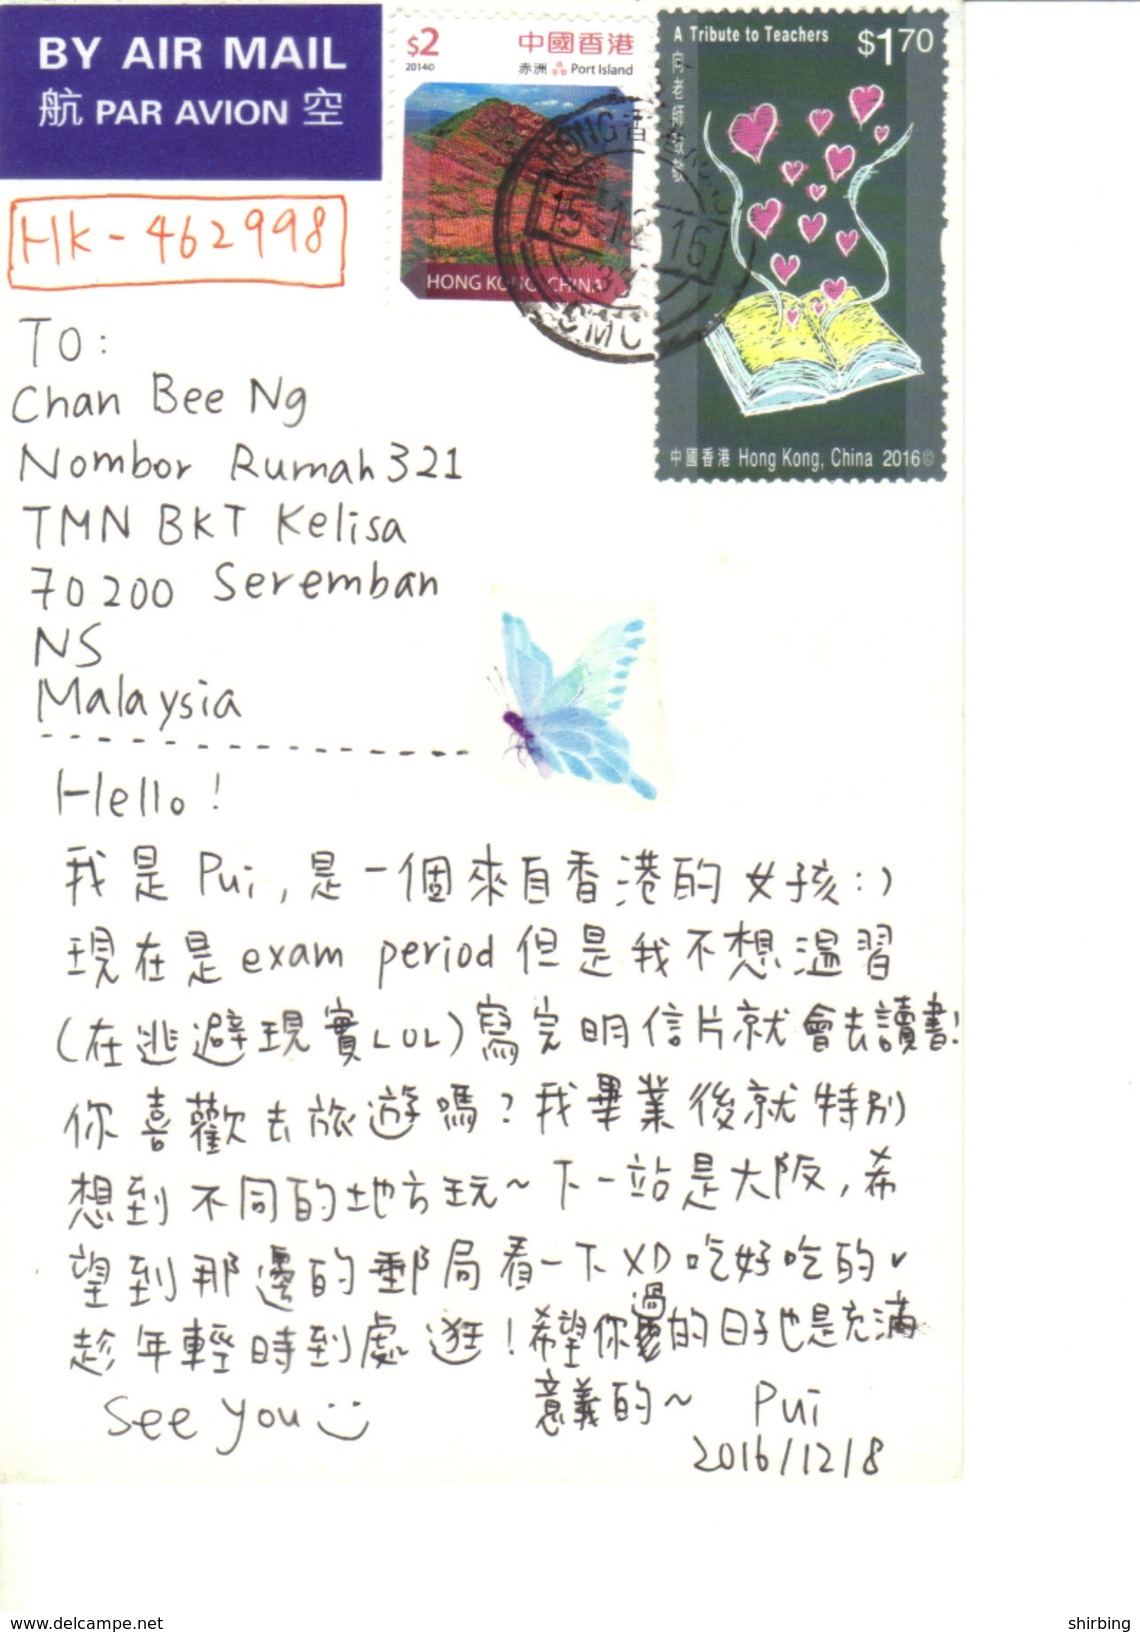 BY AIR MAIL
航 PAR AVION 空
$2 中國香港
2014© 赤洲 Port Island
HONG KONG, CHINA
A Tribute to Teachers $1.70
向老師致敬
中國香港 Hong Kong, China 2016©
15 16
HK-462998
TO:
Chan Bee Ng
Nombor Rumah 321
TMN BKT Kelisa
70200 Seremban
NS
Malaysia
Hello!
我是 Pui, 是一個來自香港的女孩:)
現在是 exam period 但是我不想溫習
(在逃避現實LOL) 寫完明信片就會去讀書!
你喜歡去旅遊嗎? 我畢業後就特別
想到不同的地方玩~ 下一站是大阪, 希
望到那邊的郵局看一下 XD 吃好吃的♥
趁年輕時到處逛! 希望你過的日子也是充滿
意義的~ Pui
See you
2016/12/8
www.delcampe.net
shirbing